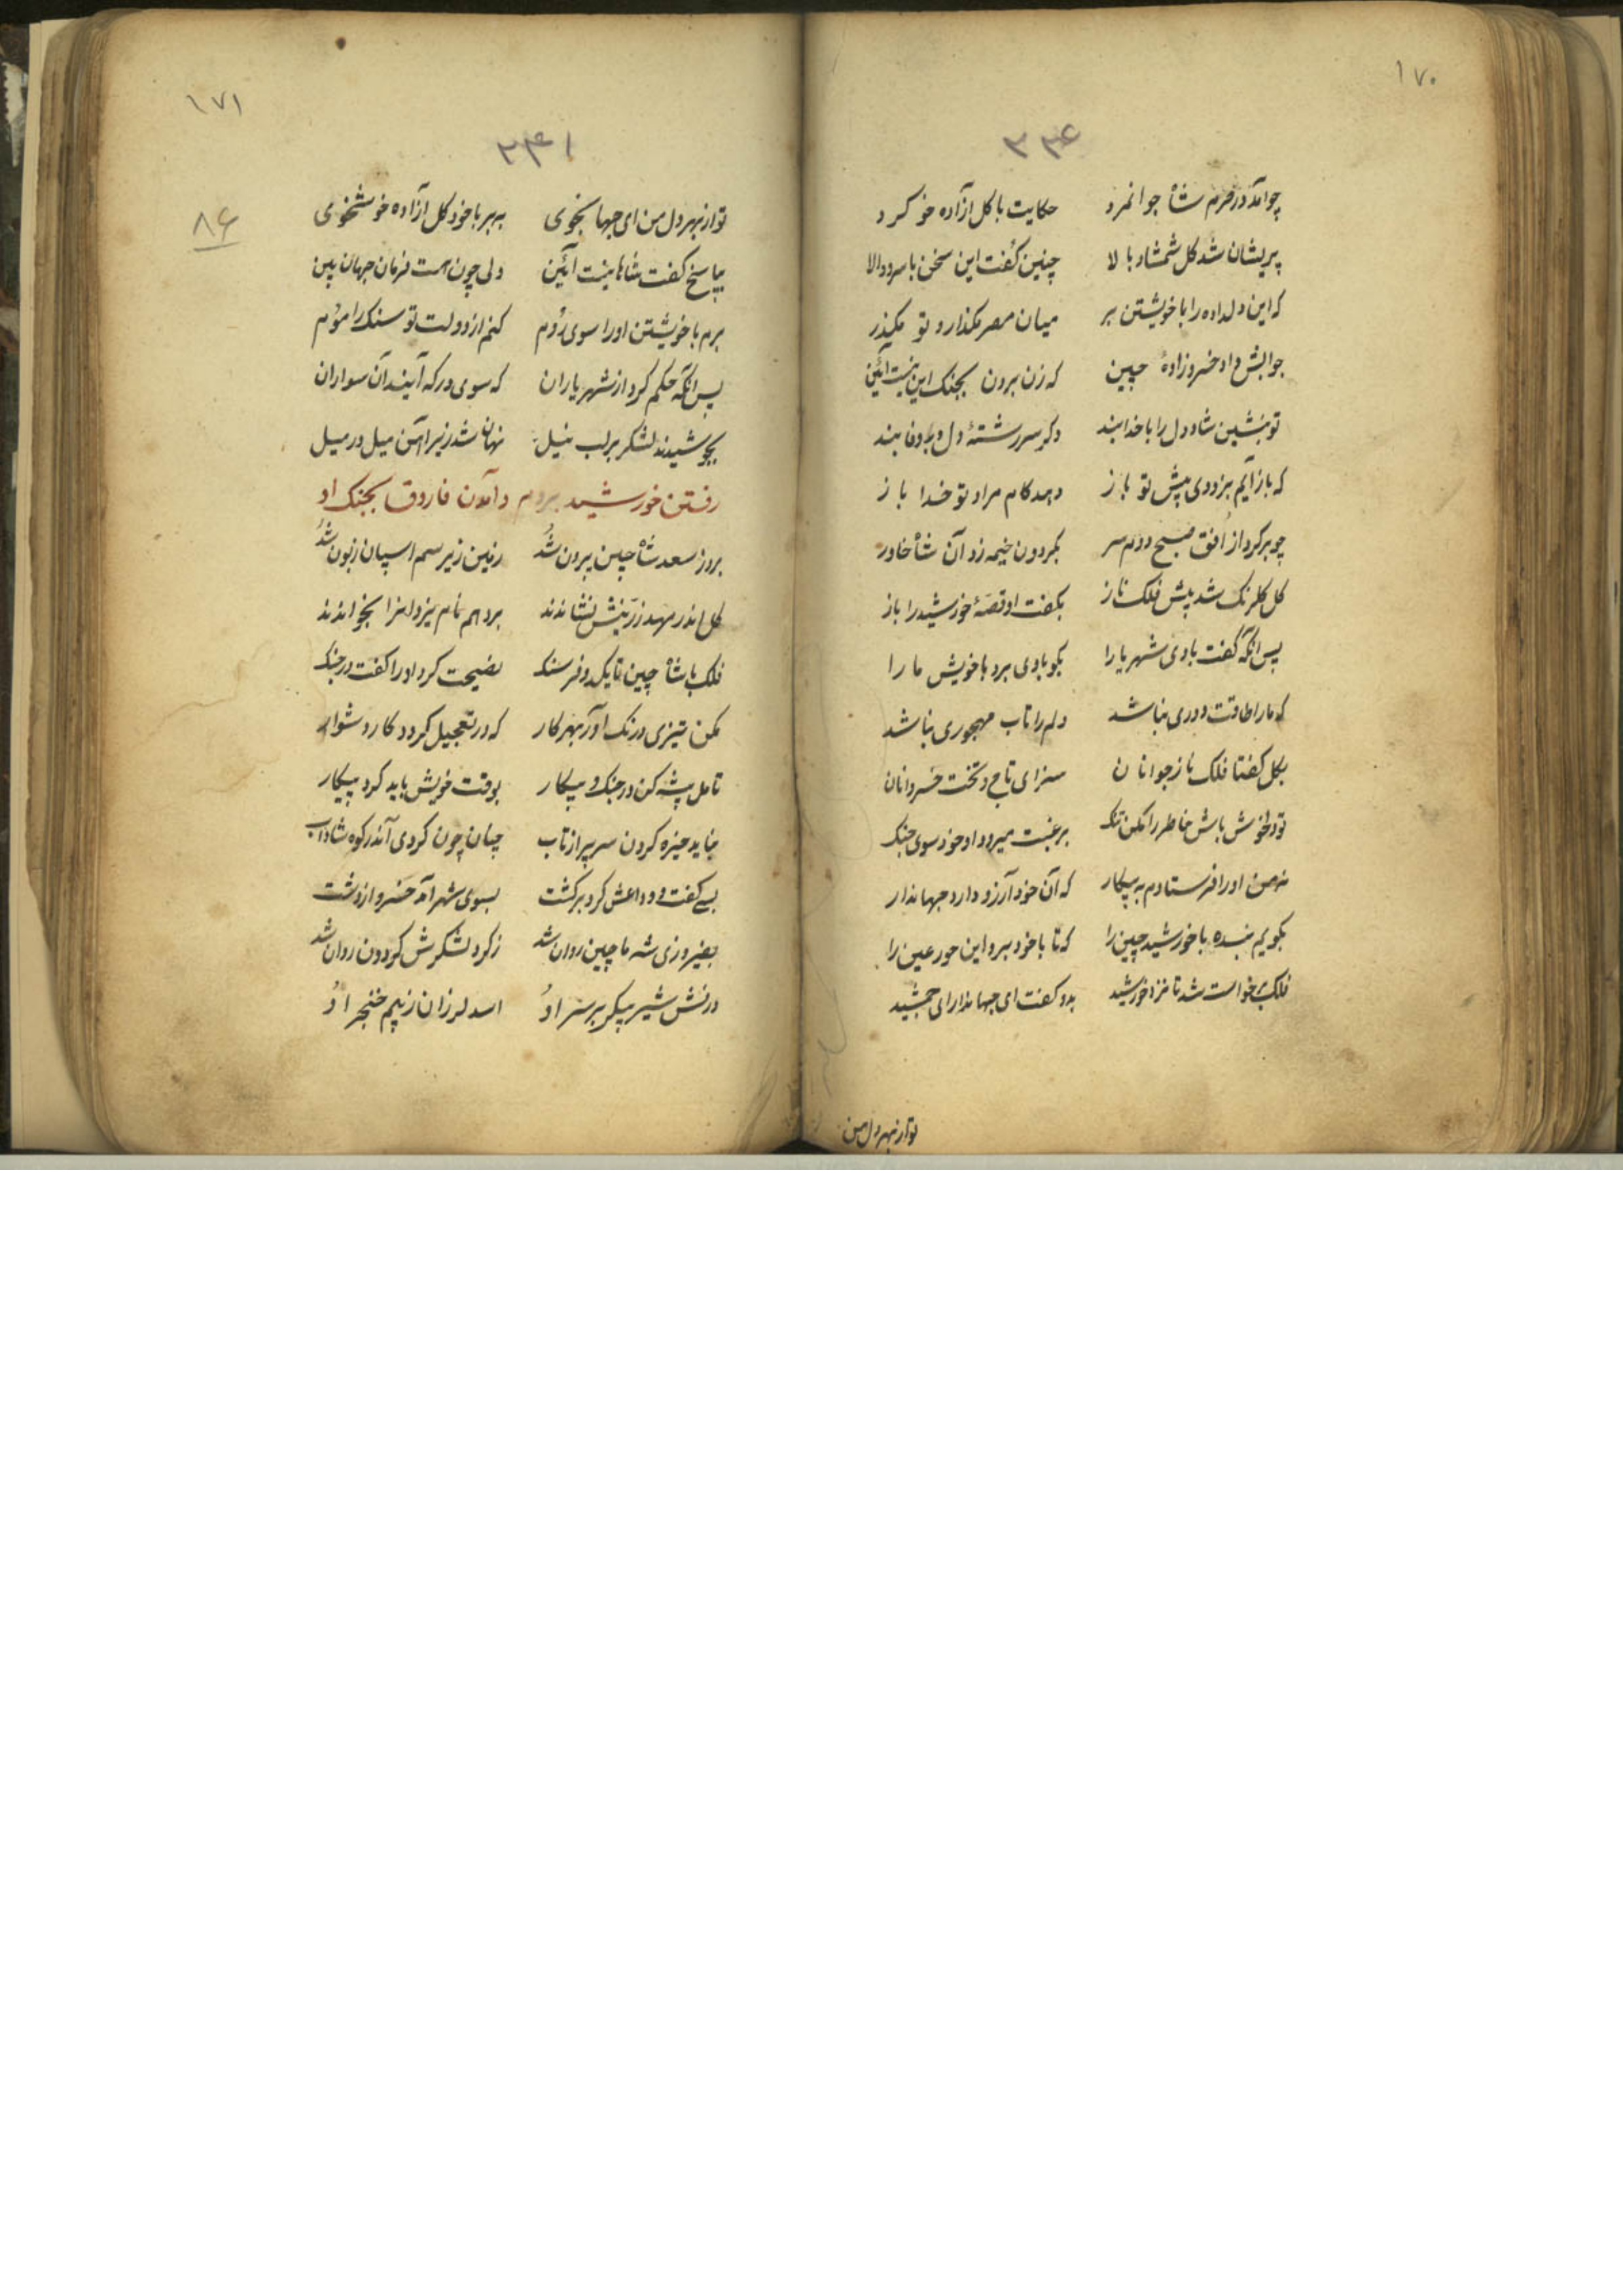 ۱۷۰
چو آمد در حرم شاه جوانمرد حکایت با کل آزاده خو کرد
پریشان شد کل شمشاد بالا چنین کفت این سخن با سرو والا
که این دلداده را با خویشتن بر میان مصر مکذار و تو مکذر
جوابش داد خسروزادهٔ چین که زن بردن بجنک این نیست آئین
تو بنشین شاد و دل را با خدا بند دکر سررشتهٔ دل در وفا بند
که باز آیم بزودی پیش تو باز دهد کام مراد تو خدا باز
چو برکرد از افق صبح دوم سر بکردون خیمه زد آن شاه خاور
کل کلرنک شد پیش فلک ناز بکفت او قصهٔ خورشید را باز
پس آنکه کفت بادی شهریارا بکو بادی برد با خویش ما را
که ما را طاقت دوری نباشد دلم را تاب مهجوری نباشد
بکل کفتا فلک ناز جوانان سزای تاج و تخت خسروانان
تو دلخوش باش خاطر را مکن تنک برغبت میرود او خود سوی جنک
نه من او را فرستادم به پیکار که آن خود آرزو دارد جهاندار
بکویم بنده با خورشید چین را که تا با خود برد این حور عین را
فلک برخواست شد تا نزد خورشید بدو کفت ای جهاندارای جمشید
تو از بهر دل من
۱۷۱
۲۴۱
۸۶
تو از بهر دل من ای جهانجوی به بر با خود کل آزاده خوشخوی
بپاسخ کفت شاها نیست آئین ولی چون هست فرمان جهان بین
برم با خویشتن او را سوی روم کنم از دولت تو سنک را موم
پس آنکه حکم کرد از شهریاران که سوی درکه آیند آن سواران
بجوشیدند لشکر بر لب نیل نهان شد زیر آهن میل در میل
رفتن خورشید بروم و آمدن فاروق بجنک او
بروز سعد شاه چین برون شد زمین زیر سم اسپان زبون شد
کل اندر مهد زرینش نشاندند برو هم نام یزدانرا بخواندند
فلک با شاه چین تا یکدو فرسنک نصیحت کرد او را کفت در جنک
مکن تیزی درنک آور بهر کار که در تعجیل کردد کار دشوار
تامل پیشه کن در جنک و پیکار بوقت خویش باید کرد پیکار
نباید خیره کردن سر پر از تاب چنان چون کردی آندر کوه شاداب
بسی کفت و وداعش کرد برکشت بسوی شهر آمد خسرو از دشت
بفیروزی شه ماچین روان شد ز کرد لشکرش کردون روان شد
درفش شیر پیکر بر سر او اسد لرزان ز بیم خنجر او